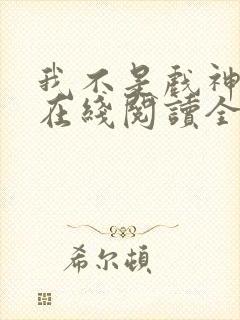 我不是戲神
在綫閱讀全
希尔頓